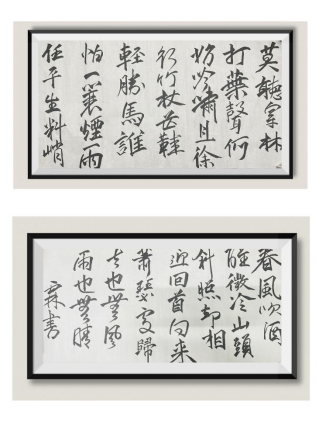 莫聽穿林
打葉聲何
妨吟嘯且徐
行竹杖芒鞋
輕勝馬誰
怕一蓑煙雨
任平生料峭
春風吹酒
醒微冷山頭
斜照却相
迎回首向来
蕭瑟處歸
去也無風
雨也無晴
霖書